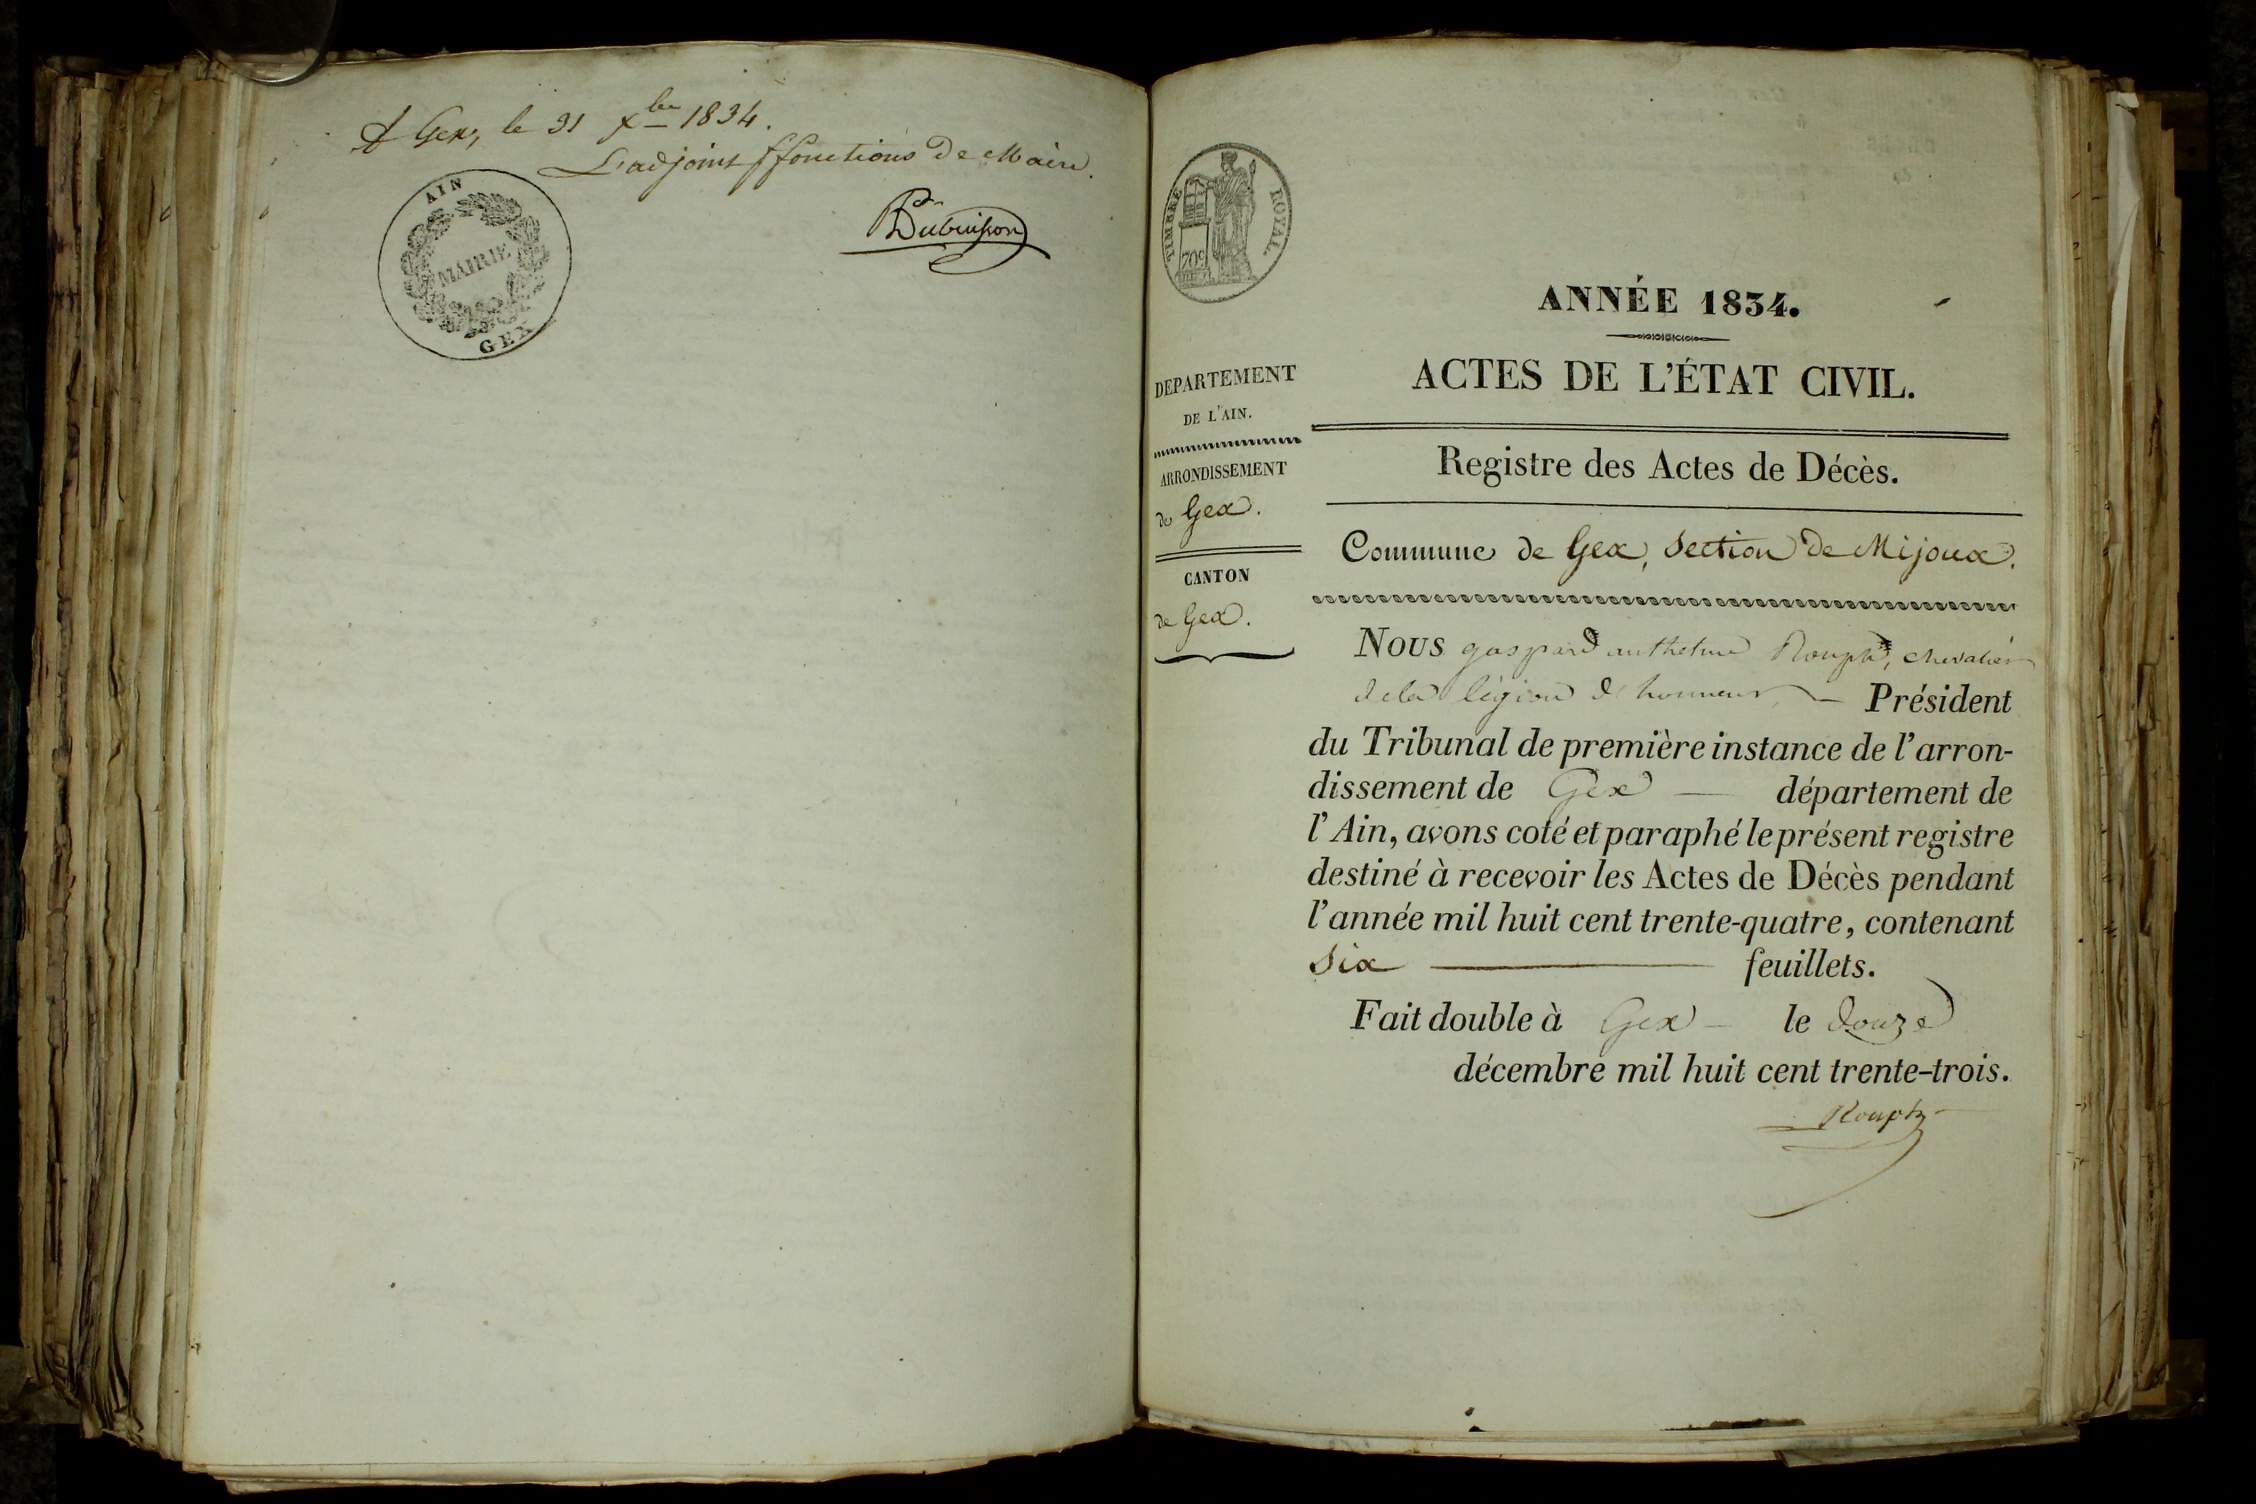 A Gex, le 31 Xbre 1834.
L'adjoint ff fonctions de Maire.
AIN
MAIRIE
GEX
Dubuisson
TIMBRE ROYAL
70c
ANNÉE 1834.
ACTES DE L'ÉTAT CIVIL.
DEPARTEMENT
DE L'AIN.
ARRONDISSEMENT
de Gex.
CANTON
de Gex.
Registre des Actes de Décès.
Commune de Gex, Section de Mijoux.
NOUS gaspard anthelme Rouph, chevalier
de la légion d'honneur, Président
du Tribunal de première instance de l'arron-
dissement de Gex département de
l'Ain, avons coté et paraphé le présent registre
destiné à recevoir les Actes de Décès pendant
l'année mil huit cent trente-quatre, contenant
Six feuillets.
Fait double à Gex le douze
décembre mil huit cent trente-trois.
Rouph